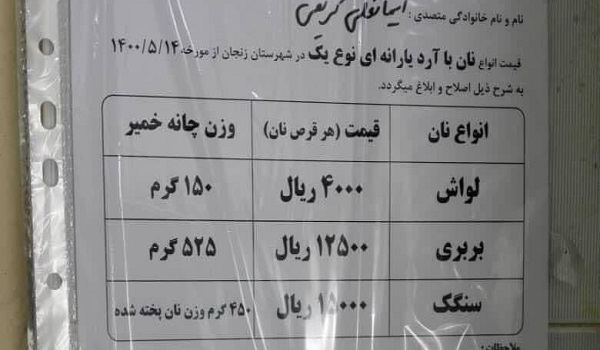 نام و نام خانوادگی متصدی :
قیمت انواع نان با آرد یارانه ای نوع یک در شهرستان زنجان از مورخه ۱۴۰۰/۵/۱۴
به شرح ذیل اصلاح و ابلاغ میگردد.
انواع نان قیمت (هر قرص نان) وزن چانه خمیر
لواش ۴۰۰۰ ریال ۱۵۰ گرم
بربری ۱۲۵۰۰ ریال ۵۲۵ گرم
سنگک ۱۵۰۰۰ ریال ۴۵۰ گرم وزن نان پخته شده
ملاحظات: